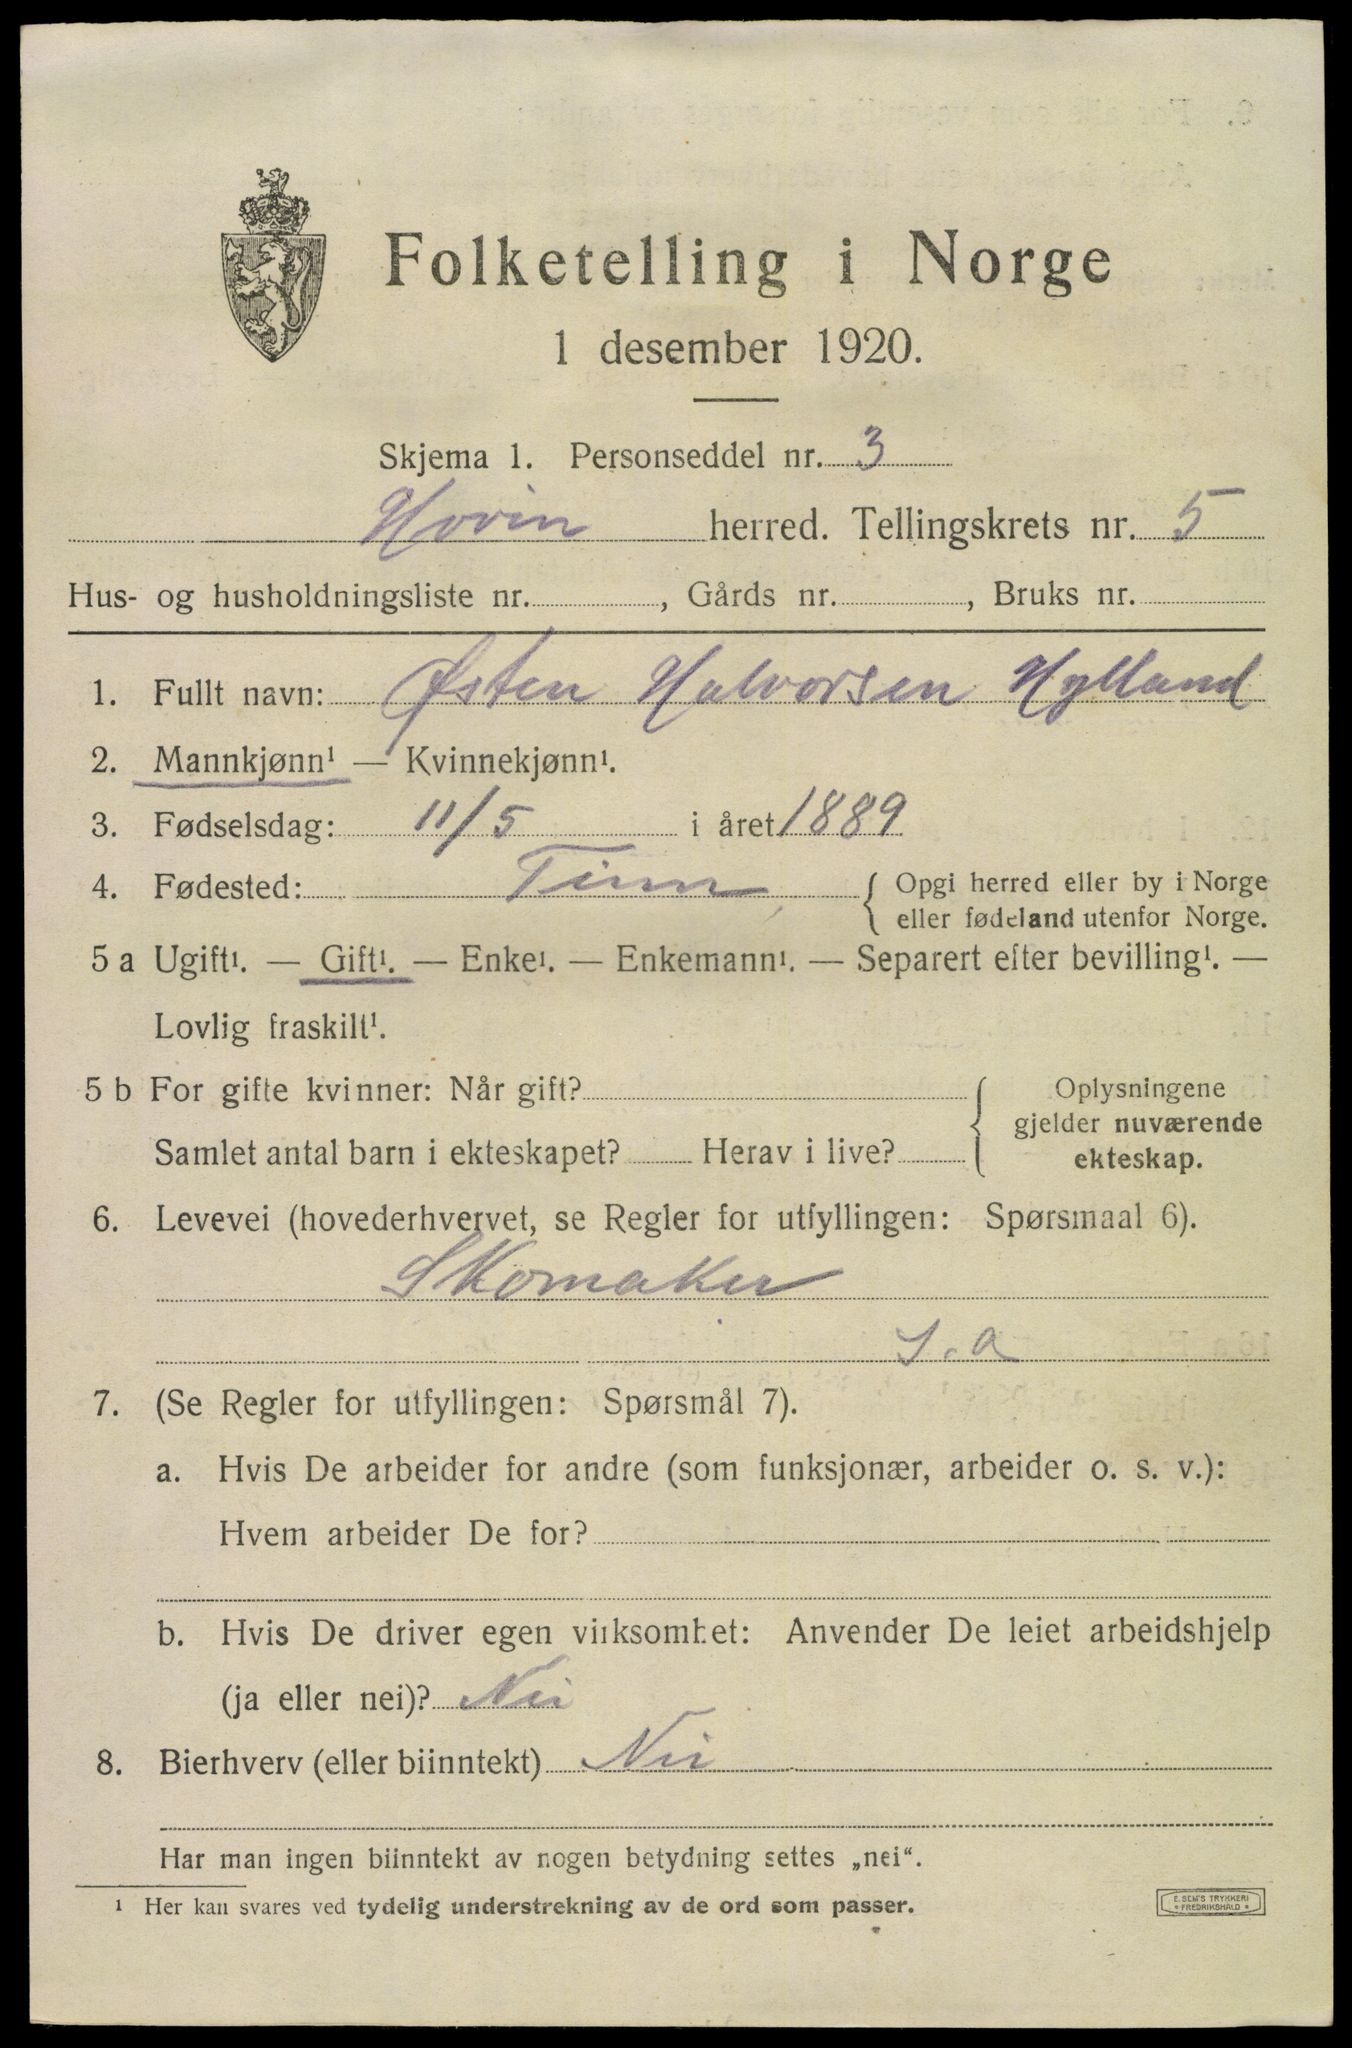 Folketelling i Norge
1 desember 1920.
Skjema 1. Personseddel nr. 3
Hovin herred. Tellingskrets nr. 5
Hus- og husholdningsliste nr. , Gårds nr. , Bruks nr.
1. Fullt navn: Østen Halvorsen Hylland
2. Mannkjønn¹ — Kvinnekjønn¹.
3. Fødselsdag: 11/5 i året 1889
4. Fødested: Tinn { Opgi herred eller by i Norge
eller fødeland utenfor Norge.
5 a Ugift¹. — Gift¹. — Enke¹. — Enkemann¹. — Separert efter bevilling¹. —
Lovlig fraskilt¹.
5 b For gifte kvinner: Når gift? { Oplysningene
gjelder nuværende
Samlet antal barn i ekteskapet? Herav i live? ekteskap.
6. Levevei (hovederhvervet, se Regler for utfyllingen: Spørsmaal 6).
Skomaker
S. a
7. (Se Regler for utfyllingen: Spørsmål 7).
a. Hvis De arbeider for andre (som funksjonær, arbeider o. s. v.):
Hvem arbeider De for?
b. Hvis De driver egen virksomhet: Anvender De leiet arbeidshjelp
(ja eller nei)? Nei
8. Bierhverv (eller biinntekt) Nei
Har man ingen biinntekt av nogen betydning settes „nei“.
¹ Her kan svares ved tydelig understrekning av de ord som passer.
E. SEM'S TRYKKERI
* FREDRIKSHALD *